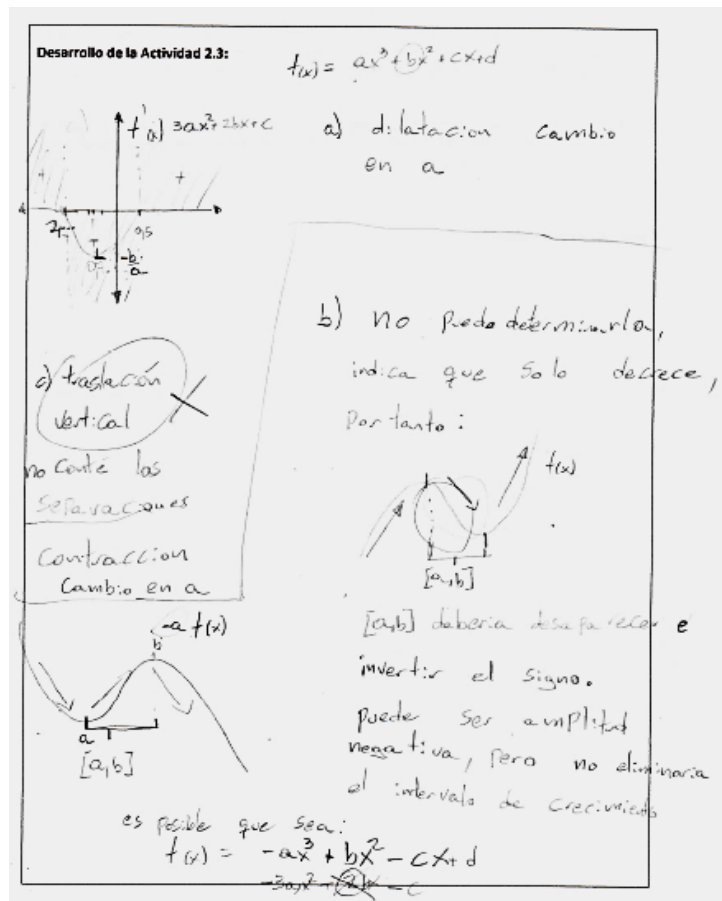 Desarrollo de la Actividad 2.3:
f(x) = ax³ + bx² + cx + d
f'(x) 3ax² + 2bx + c
+ +
0,5
-b/a
a) dilatacion cambio
en a
b) no puedo determinarlo,
indica que solo decrece,
Por tanto:
f(x)
[a,b]
[a,b] deberia desaparecer e
invertir el signo.
puede ser amplitud
negativa, pero no eliminaria
el intervalo de crecimiento
c) traslación
vertical
no conté las
separaciones
Contraccion
Cambio en a
-a f(x)
b
a
[a,b]
es posible que sea:
f(x) = -ax³ + bx² - cx + d
-3ax² + 2b - c